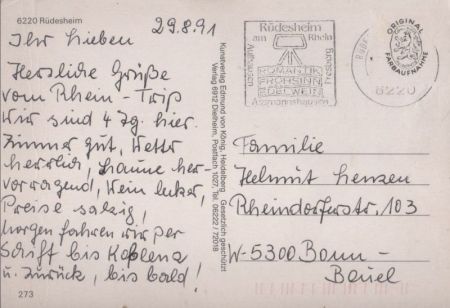 6220 Rüdesheim
29.8.91
Ihr Lieben
Herzliche Grüße
vom Rhein-Trip
Wir sind 4 Tg. hier.
Zimmer gut, Wetter
herrlich, Laune her-
vorragend, Wein lecker,
Preise salzig,
morgen fahren wir per
Schiff bis Koblenz
u. zurück, bis bald!
273
Kunstverlag Edmund von König, Heidelberg Gesetzlich geschützt
Verlag 6912 Dielheim, Postfach 1027, Tel. 06222/72018
Rüdesheim
am Rhein
Aulhausen
Presberg
ROMANTIK
FROHSINN
EDELWEIN
Assmannshausen
6220
ORIGINAL
FARBAUFNAHME
Familie
Helmut Lenzen
Rheindorferstr. 103
W-5300 Bonn-
Beuel